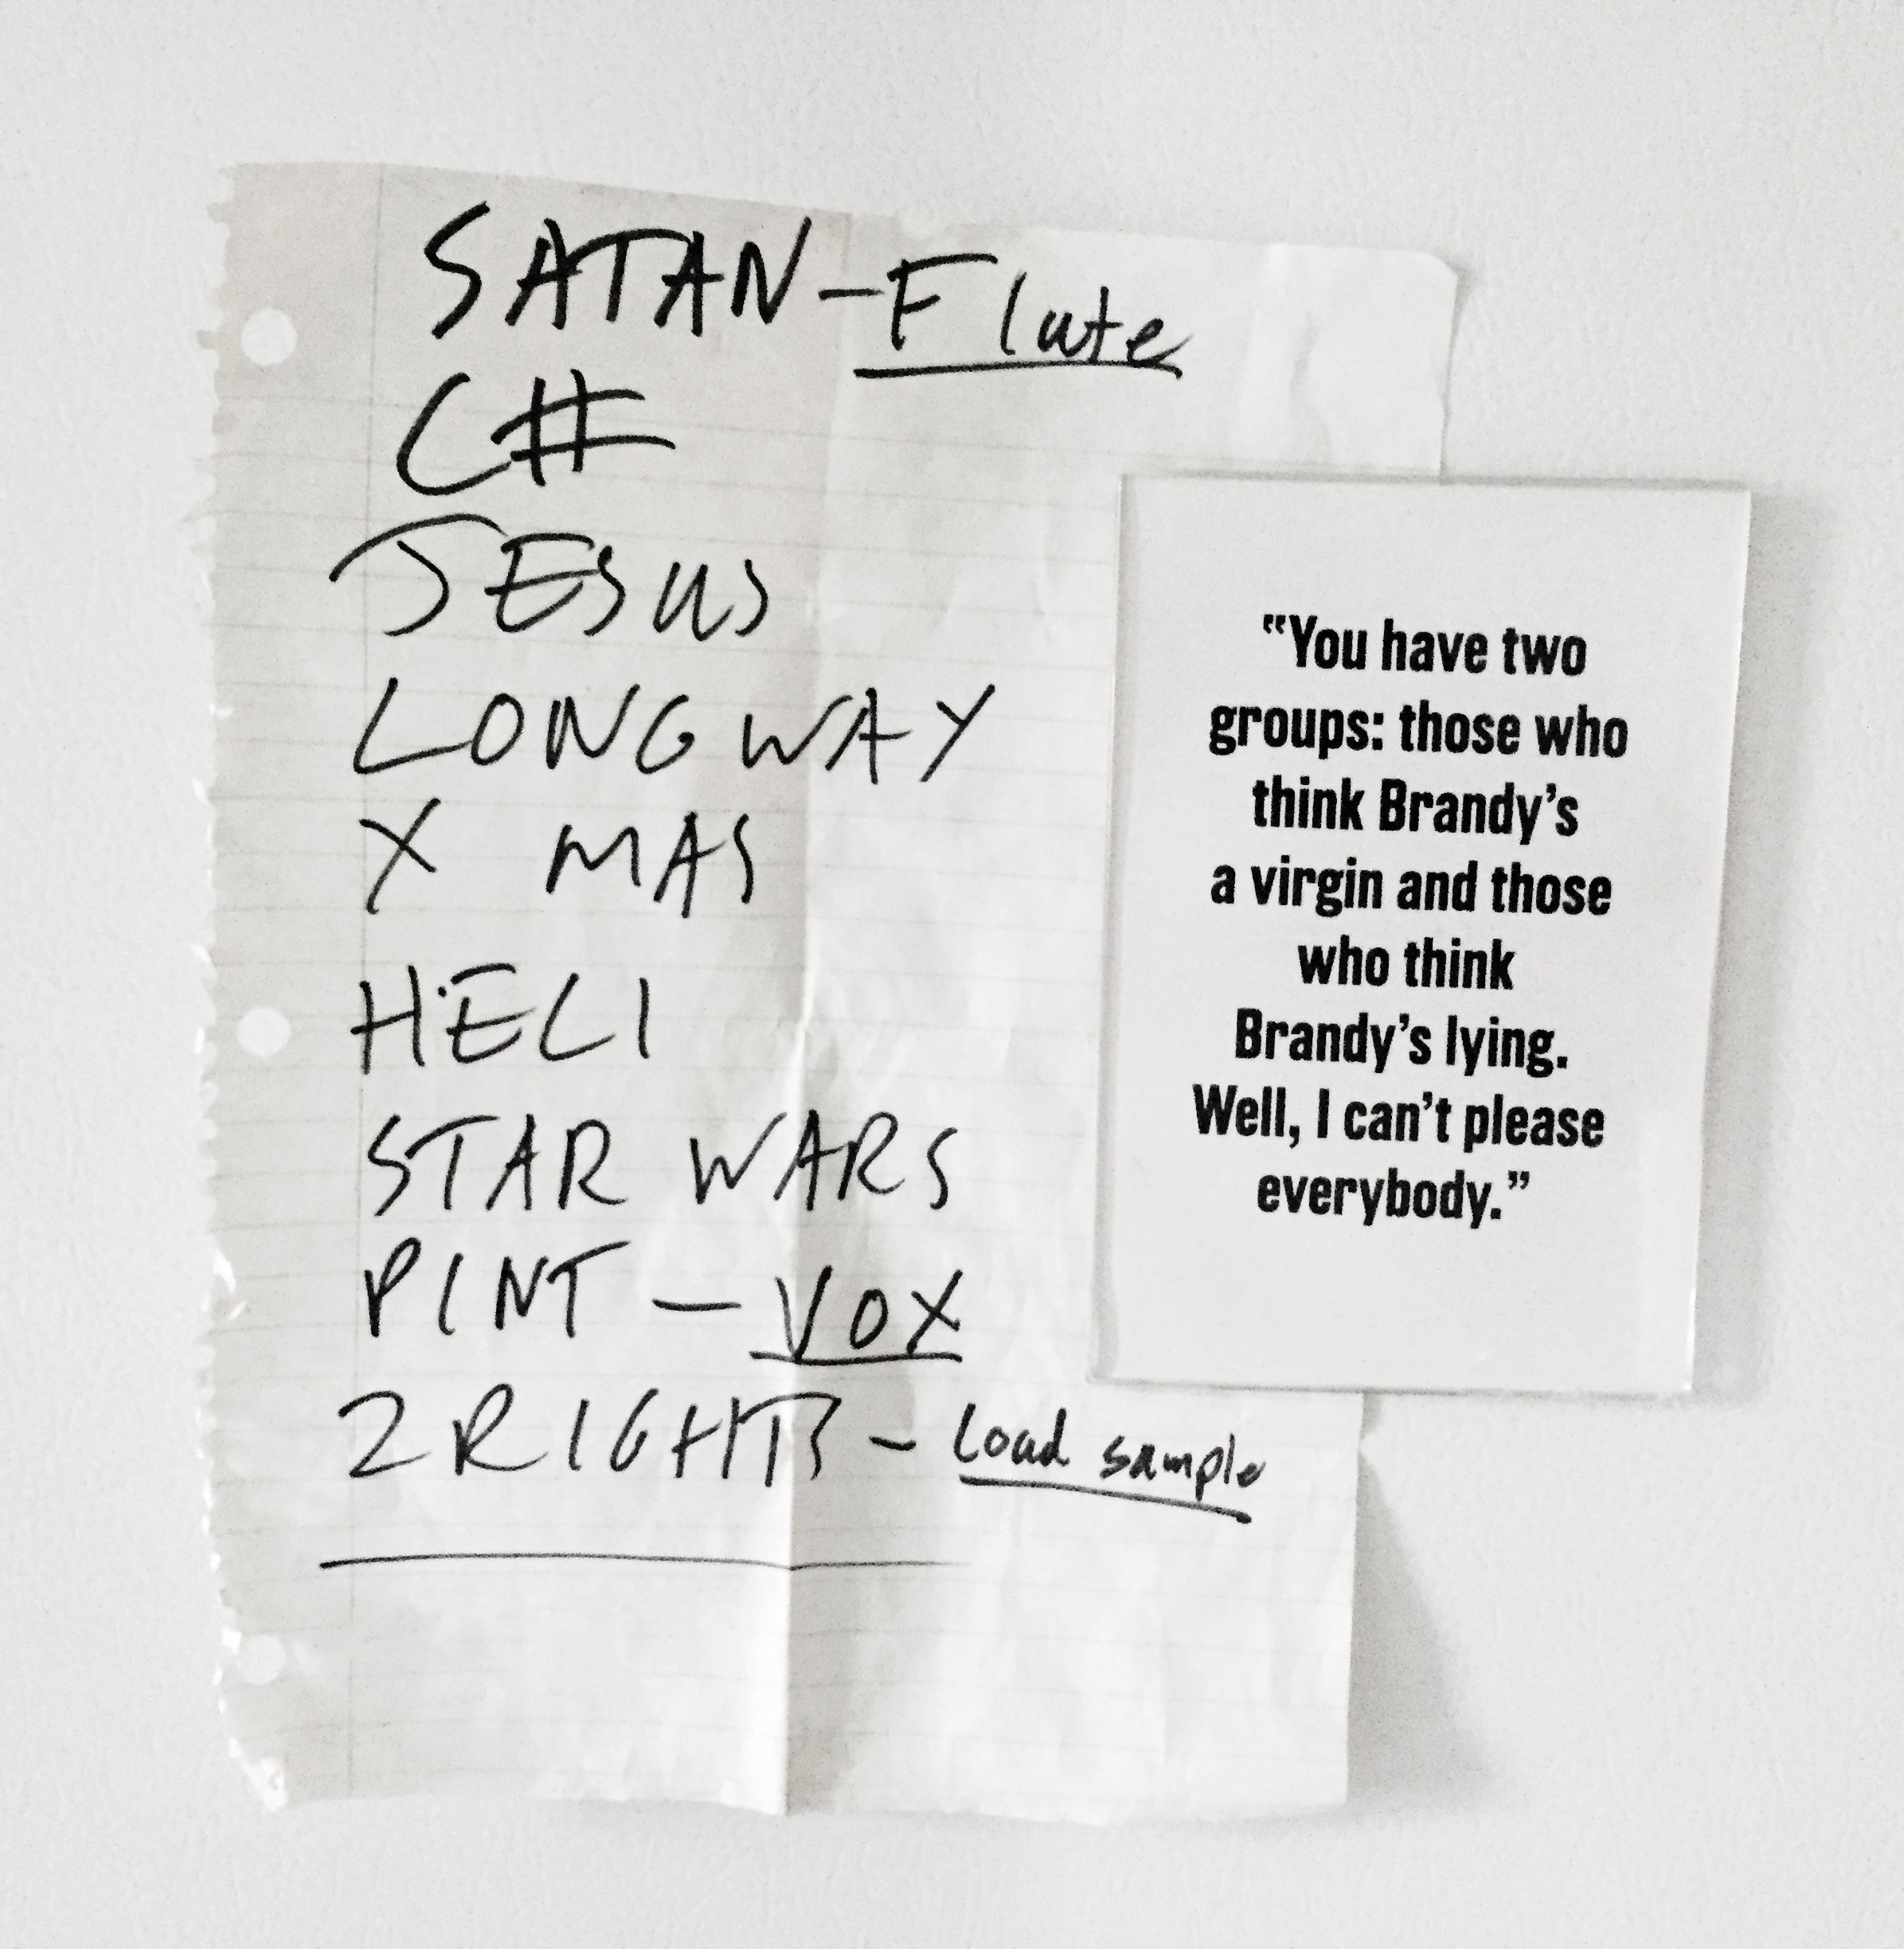 SATAN - Flute
C#
JESUS
LONG WAY
X MAS
HELI
STAR WARS
PINT - VOX
2 RIGHTS - Load sample
“You have two
groups: those who
think Brandy’s
a virgin and those
who think
Brandy’s lying.
Well, I can’t please
everybody.”